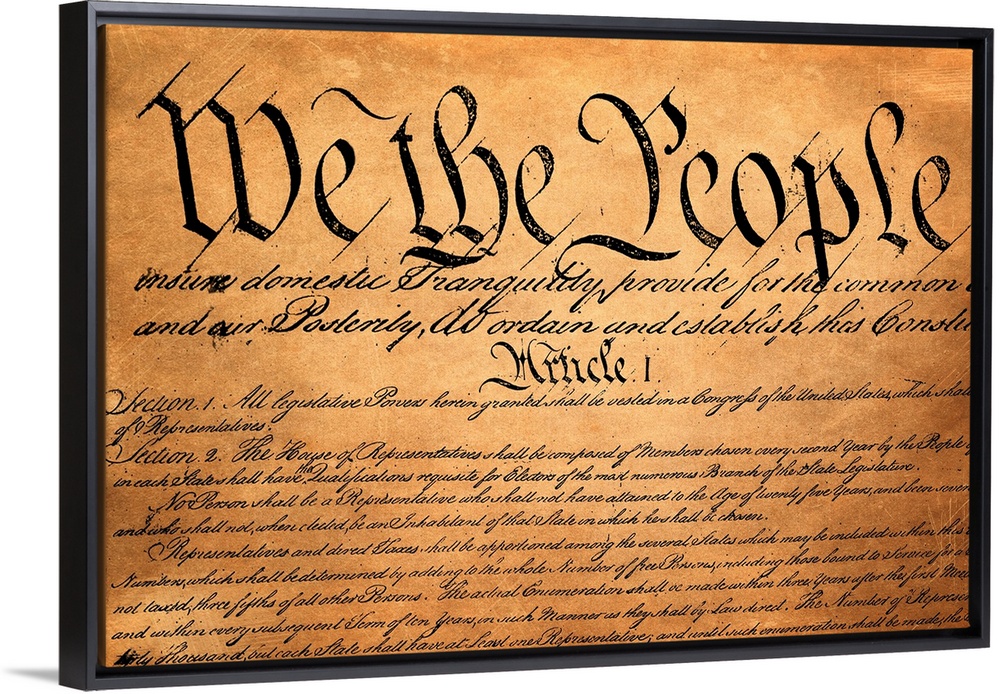 We the People
insure domestic Tranquility, provide for the common
and our Posterity, do ordain and establish this Constit
Article. I
Section. 1. All legislative Powers herein granted shall be vested in a Congress of the United States, which shall
of Representatives.
Section. 2. The House of Representatives shall be composed of Members chosen every second Year by the People
in each State shall have the Qualifications requisite for Electors of the most numerous Branch of the State Legislature.
No Person shall be a Representative who shall not have attained to the Age of twenty five Years, and been seven
and who shall not, when elected, be an Inhabitant of that State in which he shall be chosen.
Representatives and direct Taxes shall be apportioned among the several States which may be included within this
Numbers, which shall be determined by adding to the whole Number of free Persons, including those bound to Service for a
not taxed, three fifths of all other Persons. The actual Enumeration shall be made within three Years after the first Meet
and within every subsequent Term of ten Years, in such Manner as they shall by Law direct. The Number of Represen
thirty Thousand, but each State shall have at Least one Representative; and until such enumeration shall be made, the